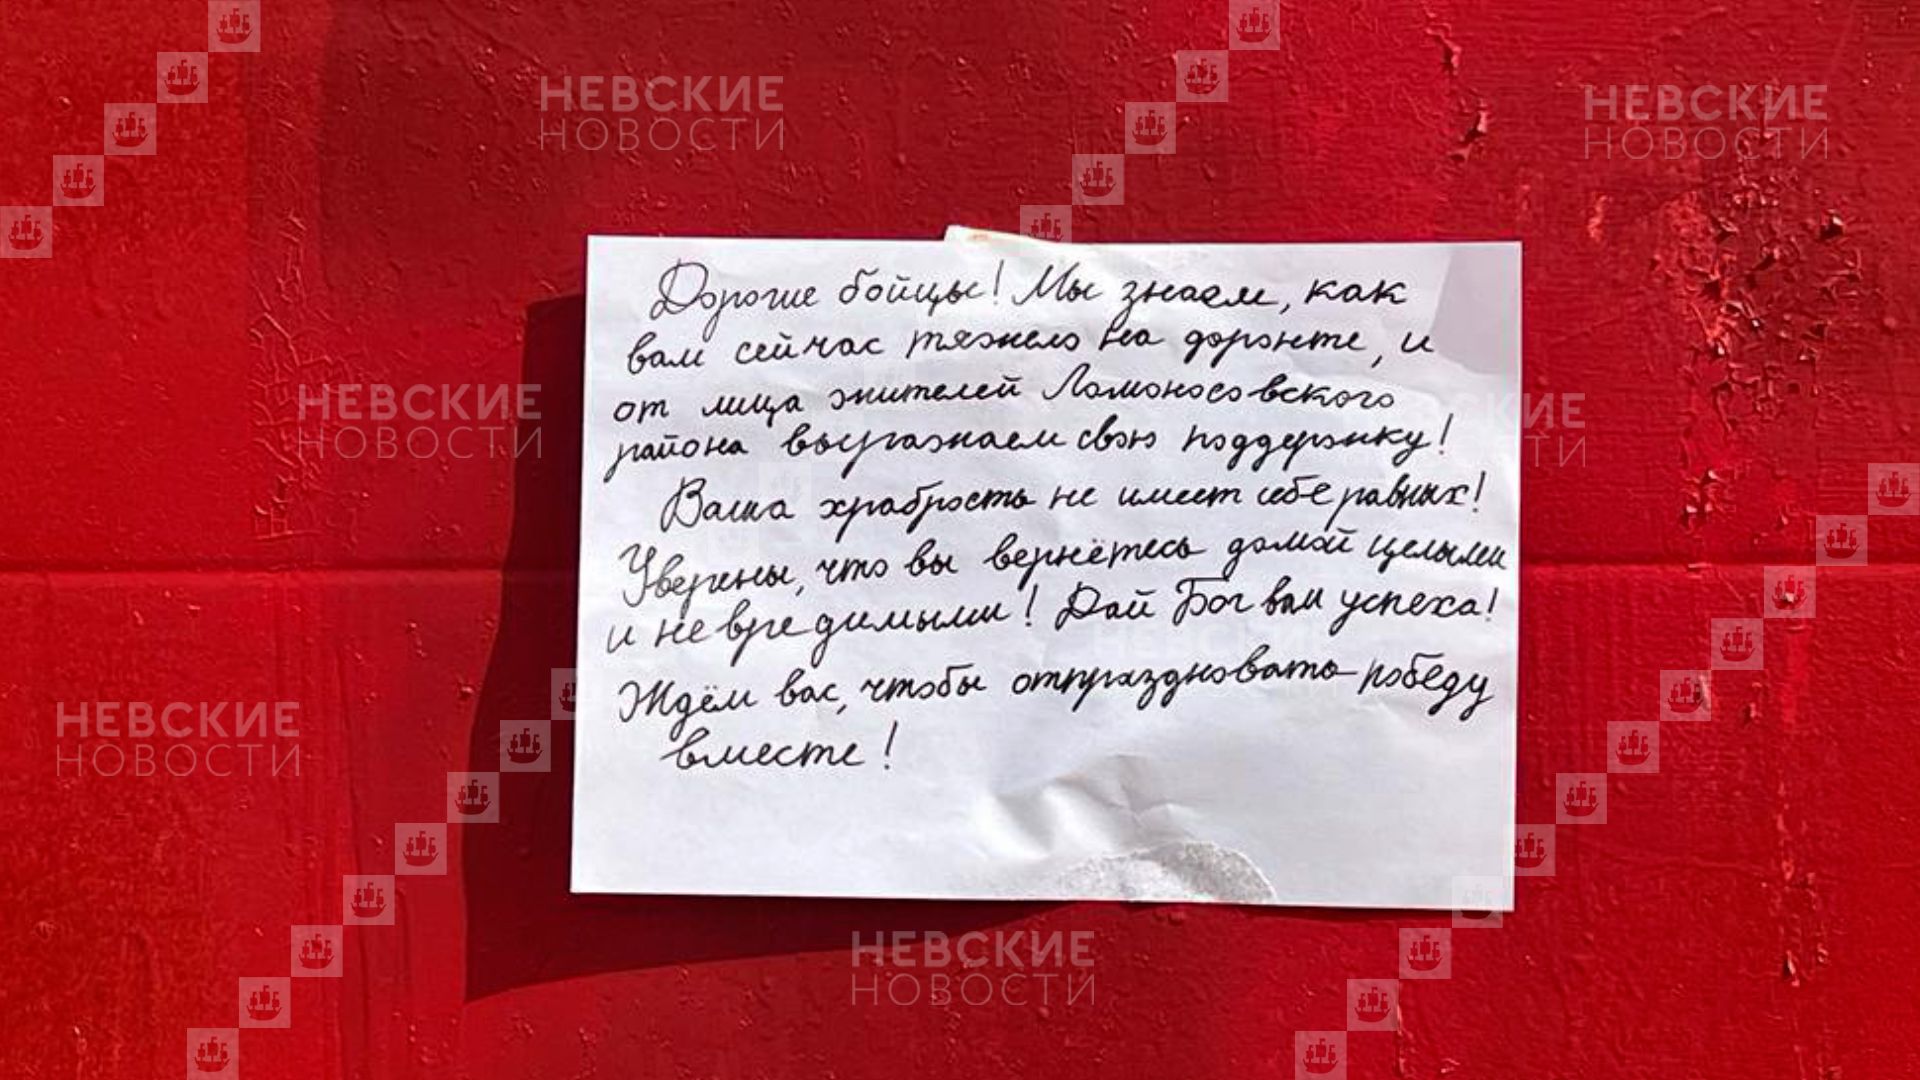 НЕВСКИЕ
НОВОСТИ
НЕВСКИЕ
НОВОСТИ
Дорогие бойцы! Мы знаем, как
вам сейчас тяжело на фронте, и
от лица жителей Ломоносовского
района выражаем свою поддержку!
Ваша храбрость не имеет себе равных!
Уверены, что вы вернётесь домой целыми
и невредимыми! Дай Бог вам успеха!
Ждём вас, чтобы отпраздновать победу
вместе!
НЕВСКИЕ
НОВОСТИ
НЕВСКИЕ
НОВОСТИ
НЕВСКИЕ
НОВОСТИ